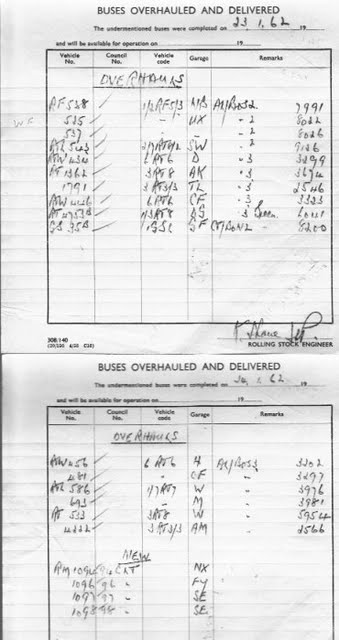 BUSES OVERHAULED AND DELIVERED
The undermentioned buses were completed on 23.1.62 19
and will be available for operation on 19
Vehicle No. Council No. Vehicle code Garage Remarks
OVERHAULS
RF 538 1/2RF5/3 NB AY/BOS2 7991
WF 535 " UX " 2 8022
537 " " " 2 8026
RTL 543 SW " 2 9126
RTW 434 6RT6 D " 3 3299
RT 1362 3RT8 AK " 3 3674
1791 3RT3/3 TL " 3 2546
RTW 446 6RT6 CF " 3 3323
RT 4753 3RT8 " 3
GS 35 1GS1 8200
308/140
ROLLING STOCK ENGINEER
BUSES OVERHAULED AND DELIVERED
The undermentioned buses were completed on 62 19
and will be available for operation on 19
Vehicle No. Council No. Vehicle code Garage Remarks
OVERHAULS
RTW 456 6 RT6 H AY/BOS3 3202
481 " CF " 3297
RTL 586 1/7RT7 W " 3976
693 " M " 3981
RT 533 3RT8 W " 5954
4222 3RT3/3 AM " 2566
NEW
RM 1094 94 CLT NX
1096 96 " FY
1097 97 " SE
1098 98 " SE